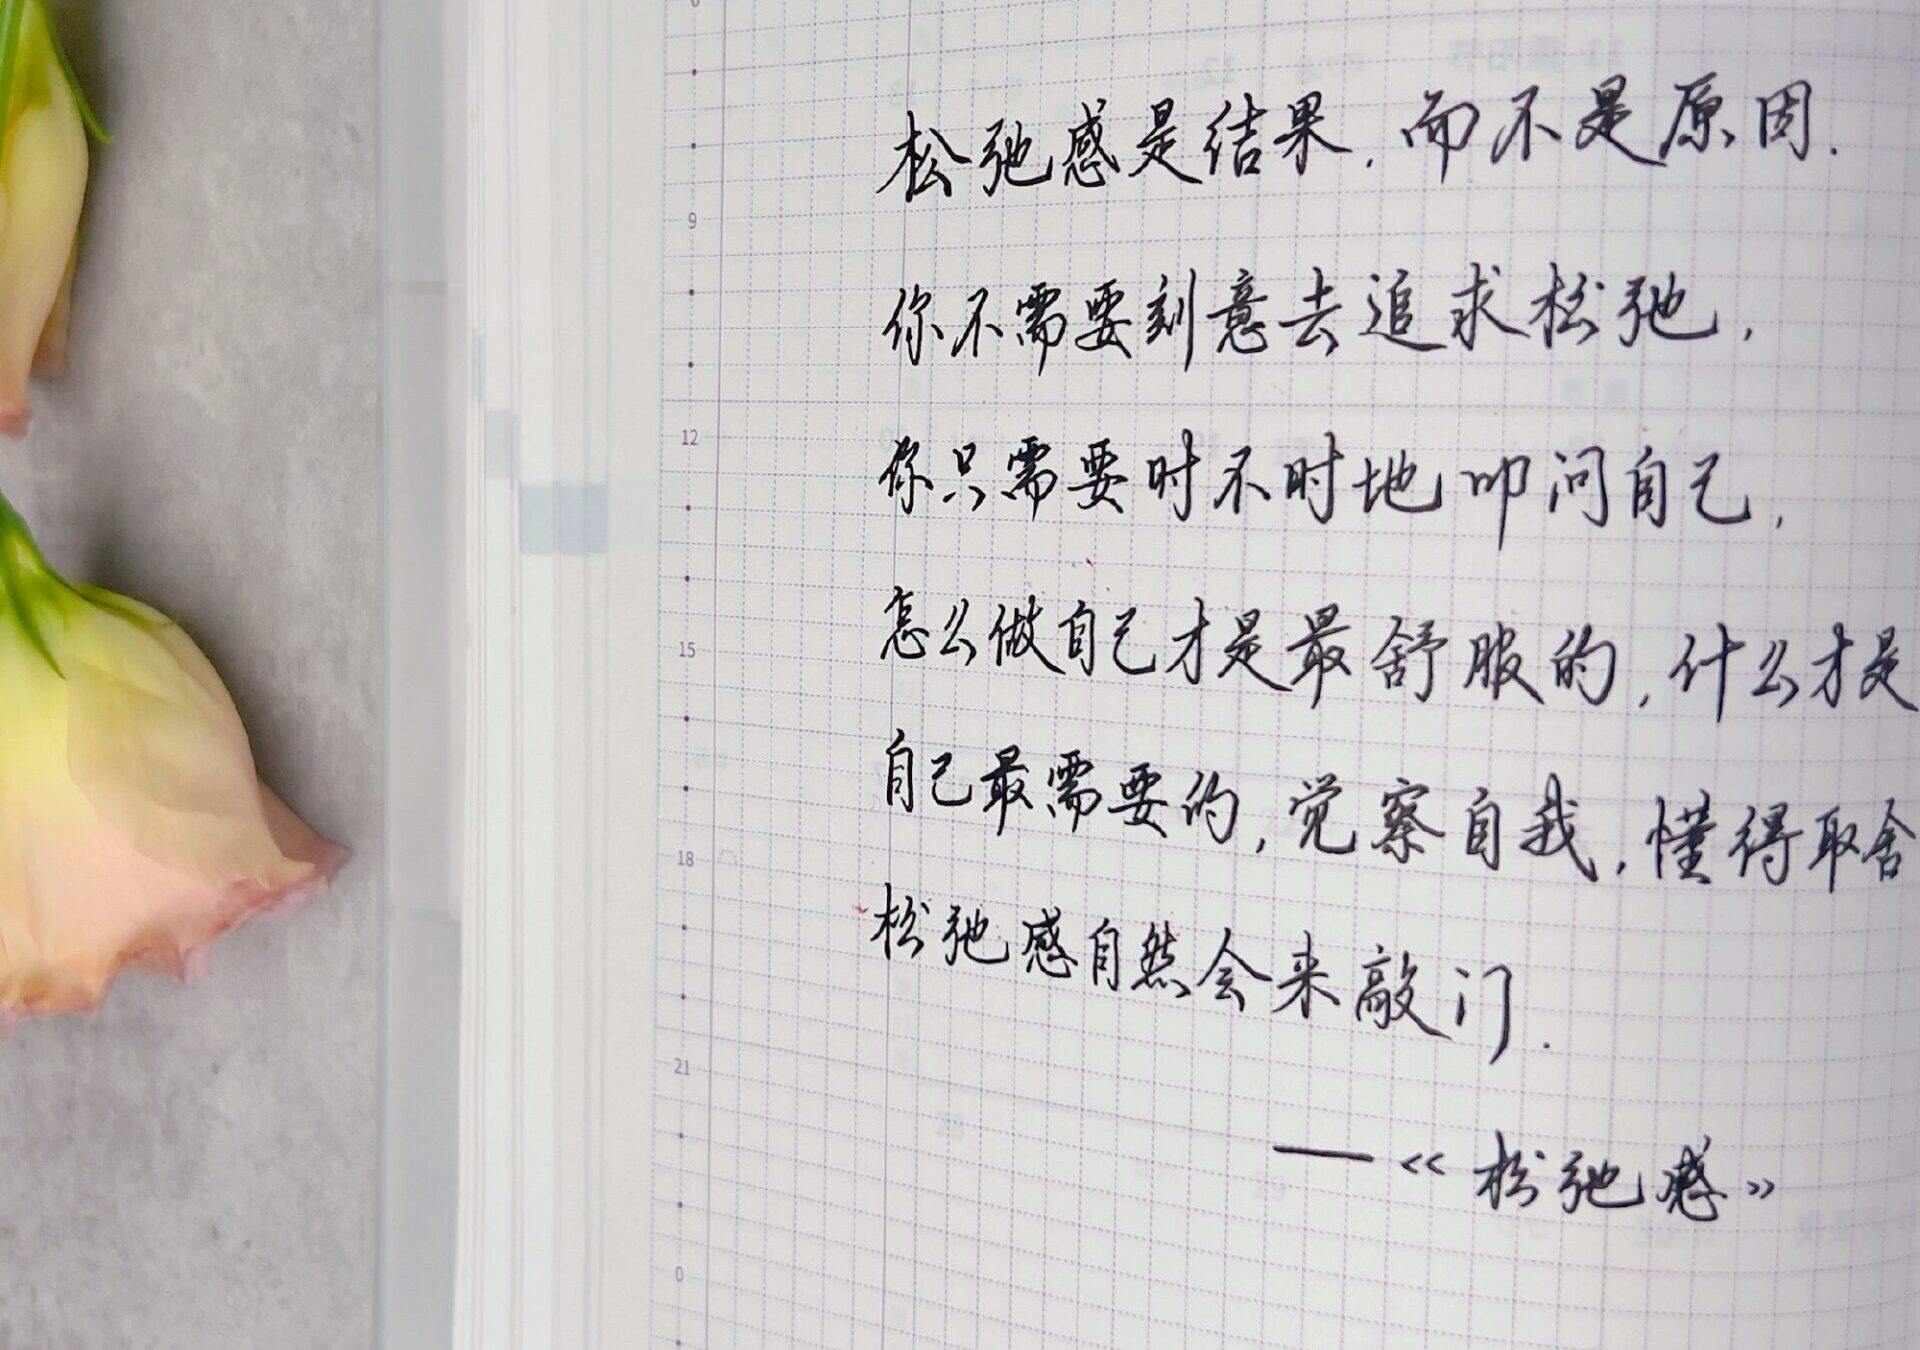 松弛感是结果,而不是原因.
9
你不需要刻意去追求松弛,
12
你只需要时不时地叩问自己,
怎么做自己才是最舒服的,什么才是
15
自己最需要的,觉察自我,懂得取舍
18
松弛感自然会来敲门.
21
—《松弛感》
0